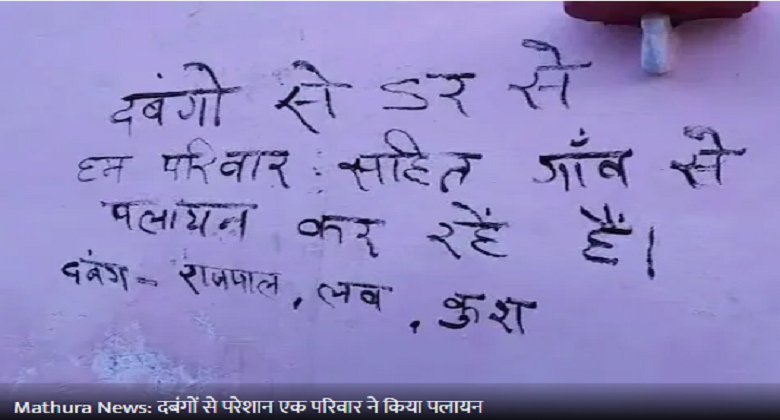 दबंगो से डर से
हम परिवार सहित गाँव से
पलायन कर रहें हैं।
दबंग - राजपाल, लव, कुश
Mathura News: दबंगों से परेशान एक परिवार ने किया पलायन